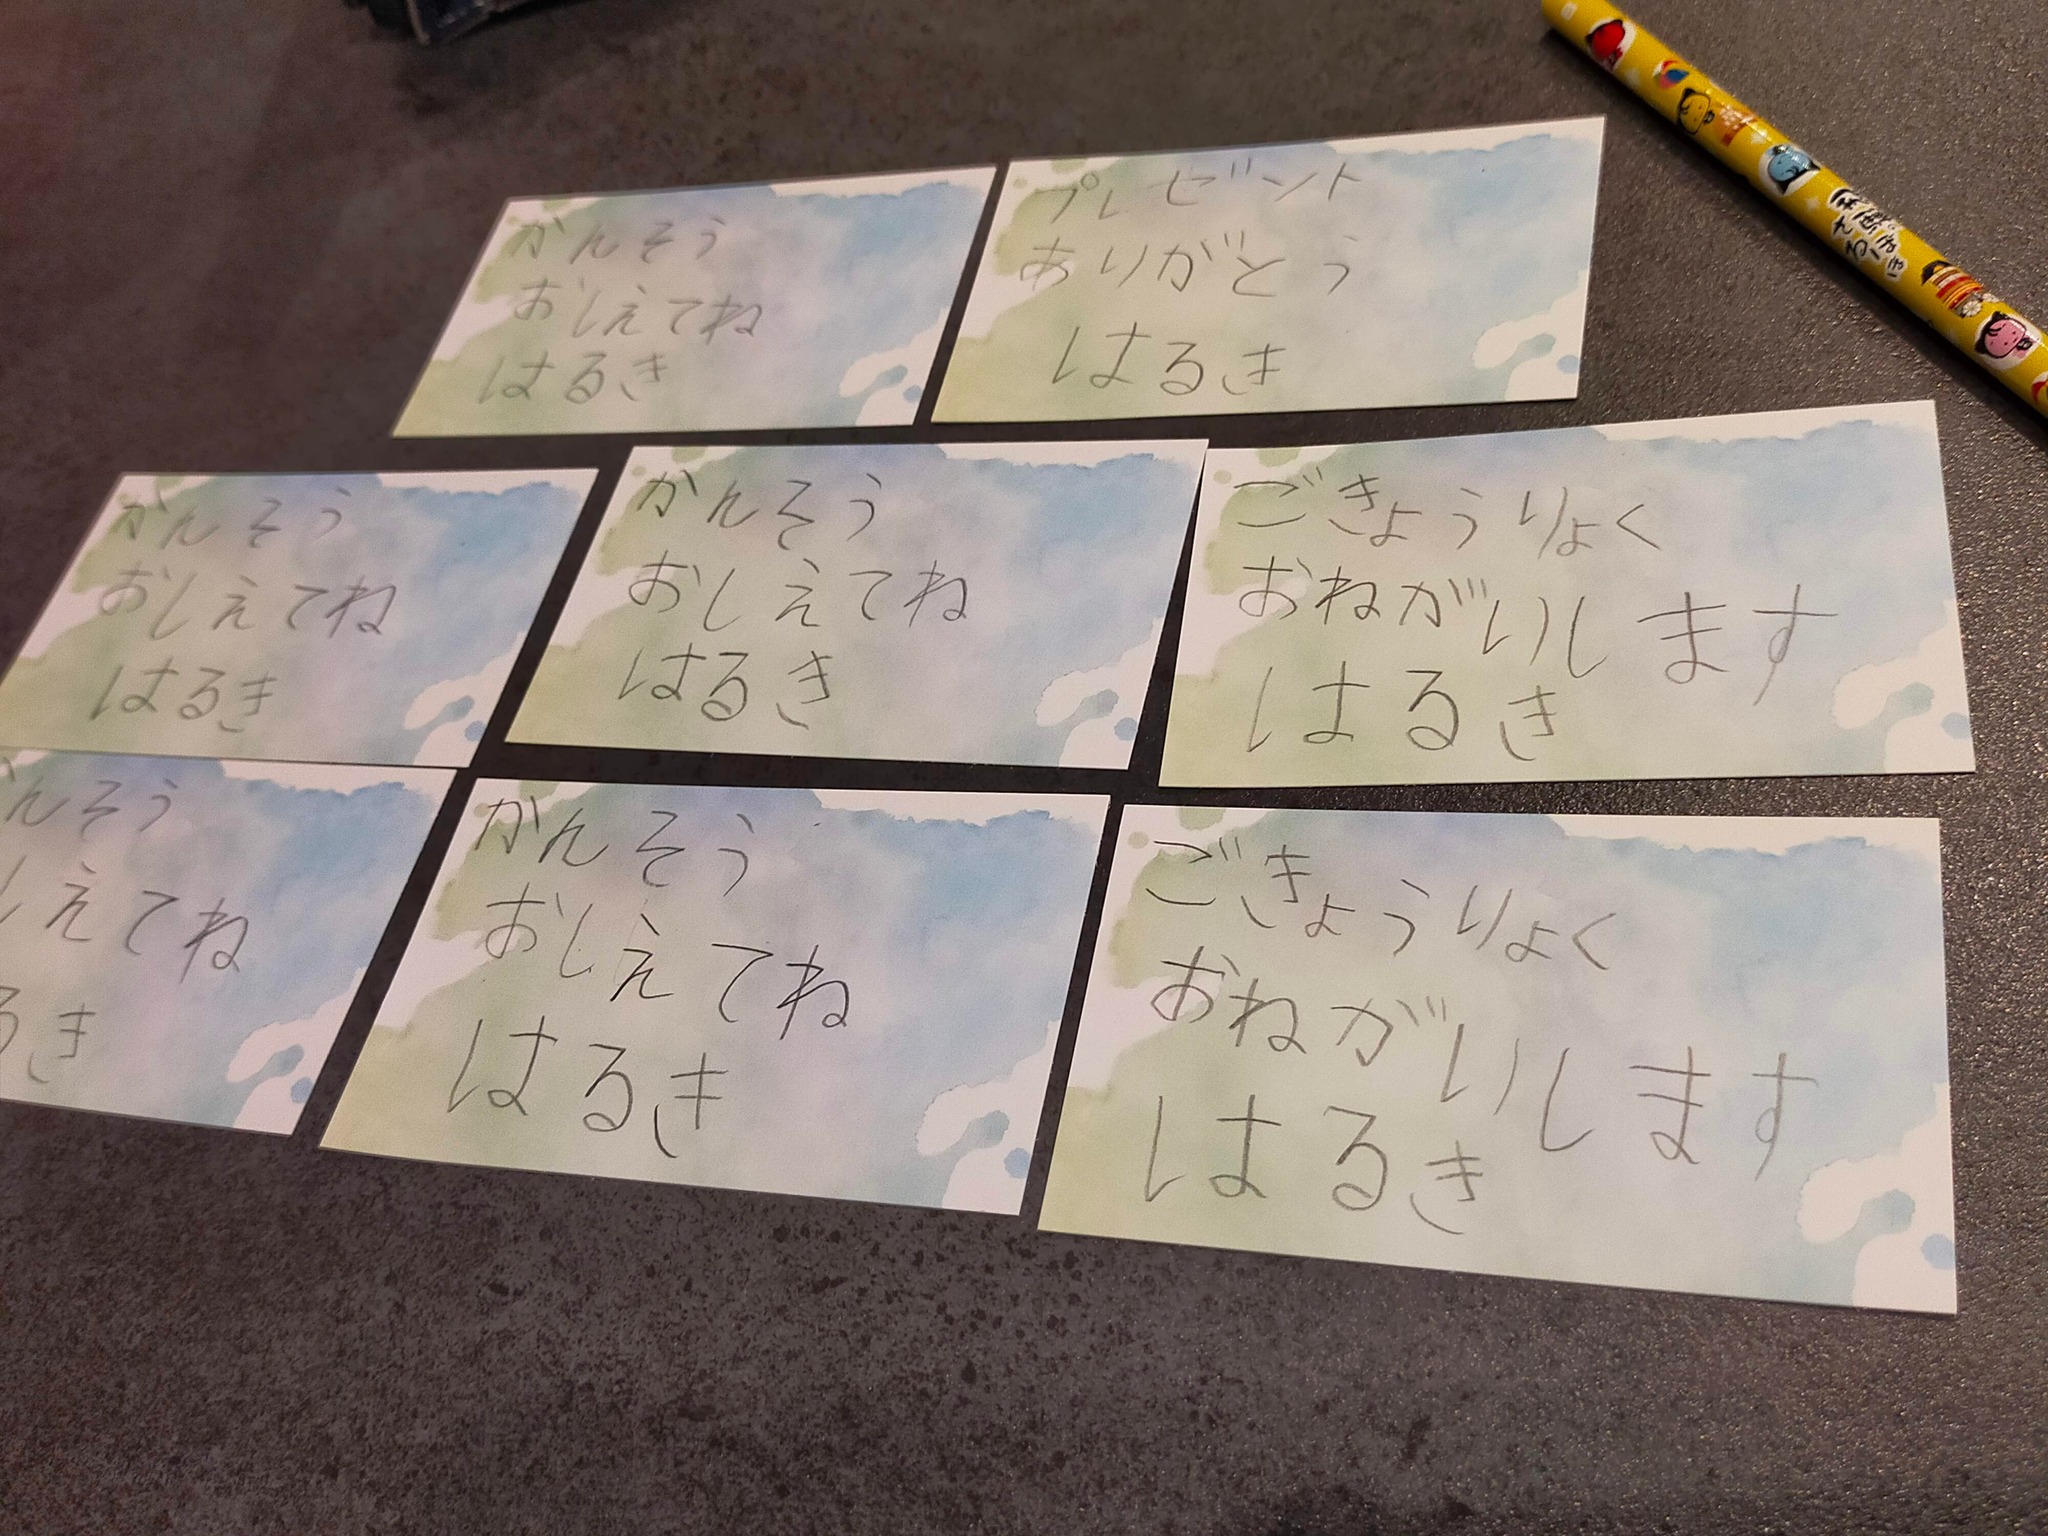 かんそう
おしえてね
はるき
プレゼント
ありがとう
はるき
かんそう
おしえてね
はるき
かんそう
おしえてね
はるき
ごきょうりょく
おねがいします
はるき
んそう
しえてね
るき
かんそう
おしえてね
はるき
ごきょうりょく
おねがいします
はるき